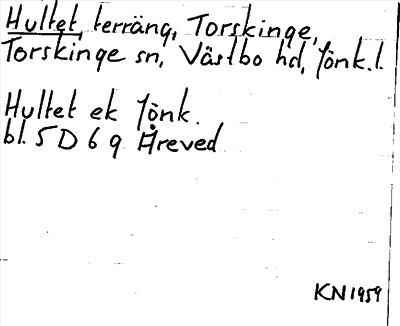 Hultet, terräng, Torskinge,
Torskinge sn, Västbo hd, Jönk.l.
Hultet ek Jönk.
bl. 5 D 6 g Åreved
KN 1959